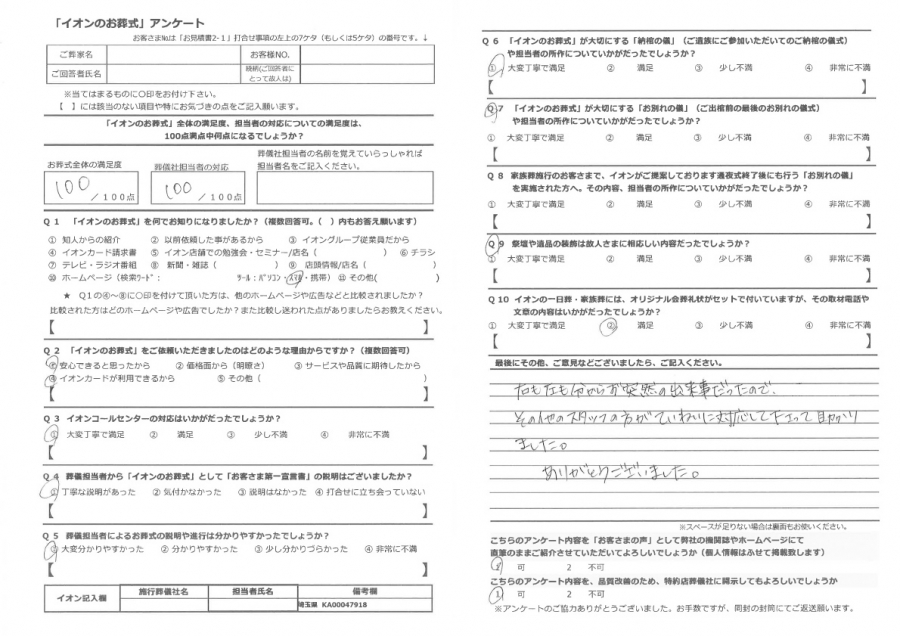 「イオンのお葬式」アンケート
お客さま№は「お見積書2-1」打合せ事項の左上の7ケタ（もしくは5ケタ）の番号です。↓
ご葬家名
お客様NO.
ご回答者氏名
続柄(ご回答者にとって故人は)
※当てはまるものに〇印をお付け下さい。
【　】には該当のない項目や特にお気づきの点をご記入願います。
「イオンのお葬式」全体の満足度、担当者の対応についての満足度は、
100点満点中何点になるでしょうか？
お葬式全体の満足度
葬儀社担当者の対応
葬儀社担当者の名前を覚えていらっしゃれば
担当者名をご記入ください。
100 / 100点
100 / 100点
Q 1　「イオンのお葬式」を何でお知りになりましたか？（複数回答可。（　）内もお答え願います）
① 知人からの紹介　② 以前依頼した事があるから　③ イオングループ従業員だから
④ イオンカード請求書　⑤ イオン店舗での勉強会・セミナー/店名（　）　⑥ チラシ
⑦ テレビ・ラジオ番組　⑧ 新聞・雑誌（　）　⑨ 店頭情報/店名（　）
⑩ ホームページ（検索ﾜｰﾄﾞ：　ﾂｰﾙ：ﾊﾟｿｺﾝ・ｽﾏﾎ・携帯）　⑪ その他(　)
★ Q1の④～⑧に〇印を付けて頂いた方は、他のホームページや広告などと比較されましたか？
比較された方はどのホームページや広告でしたか？また比較し迷われた点がありましたらお教えください。
【　】
Q 2　「イオンのお葬式」をご依頼いただきましたのはどのような理由からですか？（複数回答可）
① 安心できると思ったから　② 価格面から（明瞭さ）　③ サービスや品質に期待したから
④ イオンカードが利用できるから　⑤ その他（　）
【　】
Q 3　イオンコールセンターの対応はいかがだったでしょうか？
① 大変丁寧で満足　②　満足　③　少し不満　④　非常に不満
【　】
Q 4　葬儀担当者から「イオンのお葬式」として「お客さま第一宣言書」の説明はございましたか？
① 丁寧な説明があった　② 気付かなかった　③ 説明はなかった　④ 打合せに立ち会っていない
【　】
Q 5　葬儀担当者によるお葬式の説明や進行は分かりやすかったでしょうか？
① 大変分かりやすかった　② 分かりやすかった　③ 少し分かりづらかった　④ 非常に不満
【　】
イオン記入欄　施行葬儀社名　担当者氏名　備考欄
埼玉県 KA00047918
Q 6　「イオンのお葬式」が大切にする「納棺の儀」（ご遺族にご参加いただいてのご納棺の儀式）
や担当者の所作についていかがだったでしょうか？
① 大変丁寧で満足　②　満足　③　少し不満　④　非常に不満
【　】
Q 7　「イオンのお葬式」が大切にする「お別れの儀」（ご出棺前の最後のお別れの儀式）
や担当者の所作についていかがだったでしょうか？
① 大変丁寧で満足　②　満足　③　少し不満　④　非常に不満
【　】
Q 8　家族葬施行のお客さまで、イオンがご提案しております通夜式終了後にも行う「お別れの儀」
を実施された方へ。その内容、担当者の所作についていかがだったでしょうか？
① 大変丁寧で満足　②　満足　③　少し不満　④　非常に不満
【　】
Q 9　祭壇や遺品の装飾は故人さまに相応しい内容だったでしょうか？
① 大変丁寧で満足　②　満足　③　少し不満　④　非常に不満
【　】
Q 10　イオンの一日葬・家族葬には、オリジナル会葬礼状がセットで付いていますが、その取材電話や
文章の内容はいかがだったでしょうか？
① 大変丁寧で満足　②　満足　③　少し不満　④　非常に不満
【　】
最後にその他、ご意見などございましたら、ご記入ください。
右も左も分からず突然の出来事だったので、
その他のスタッフの方がていねいに対応して下さって助かり
ました。
ありがとうございました。
※スペースが足りない場合は裏面もお使いください。
こちらのアンケート内容を「お客さまの声」として弊社の機関誌やホームページにて
直筆のままご紹介させていただいてよろしいでしょうか（個人情報はふせて掲載致します）
1　可　2　不可
こちらのアンケート内容を、品質改善のため、特約店葬儀社に開示してもよろしいでしょうか
1　可　2　不可
※アンケートのご協力ありがとうございました。お手数ですが、同封の封筒にてご返送願います。